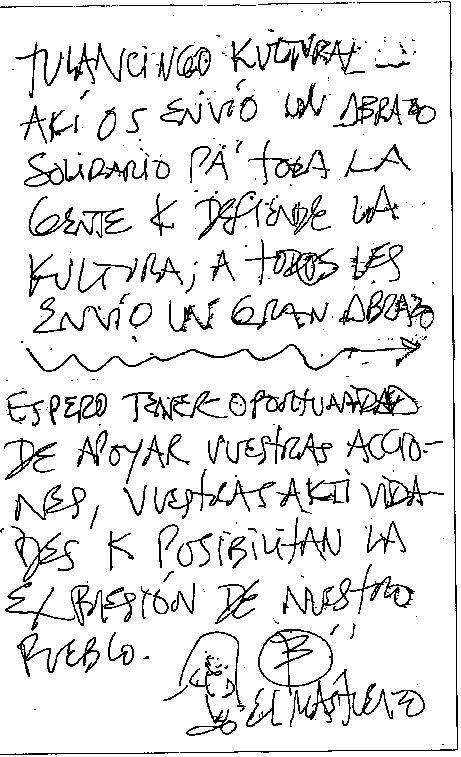 TULANCINGO KULTURAL
AKÍ OS ENVIÓ UN ABRAZO
SOLIDARIO PA' TODA LA
GENTE K DEFIENDE LA
KULTURA, A TODOS LES
ENVÍO UN GRAN ABRAZO
ESPERO TENER OPORTUNIDAD
DE APOYAR VUESTRAS ACCIO-
NES, VUESTRAS AKTIVIDA-
DES K POSIBILITAN LA
EXPRESIÓN DE NUESTRO
PUEBLO.
EL MASTUERZO